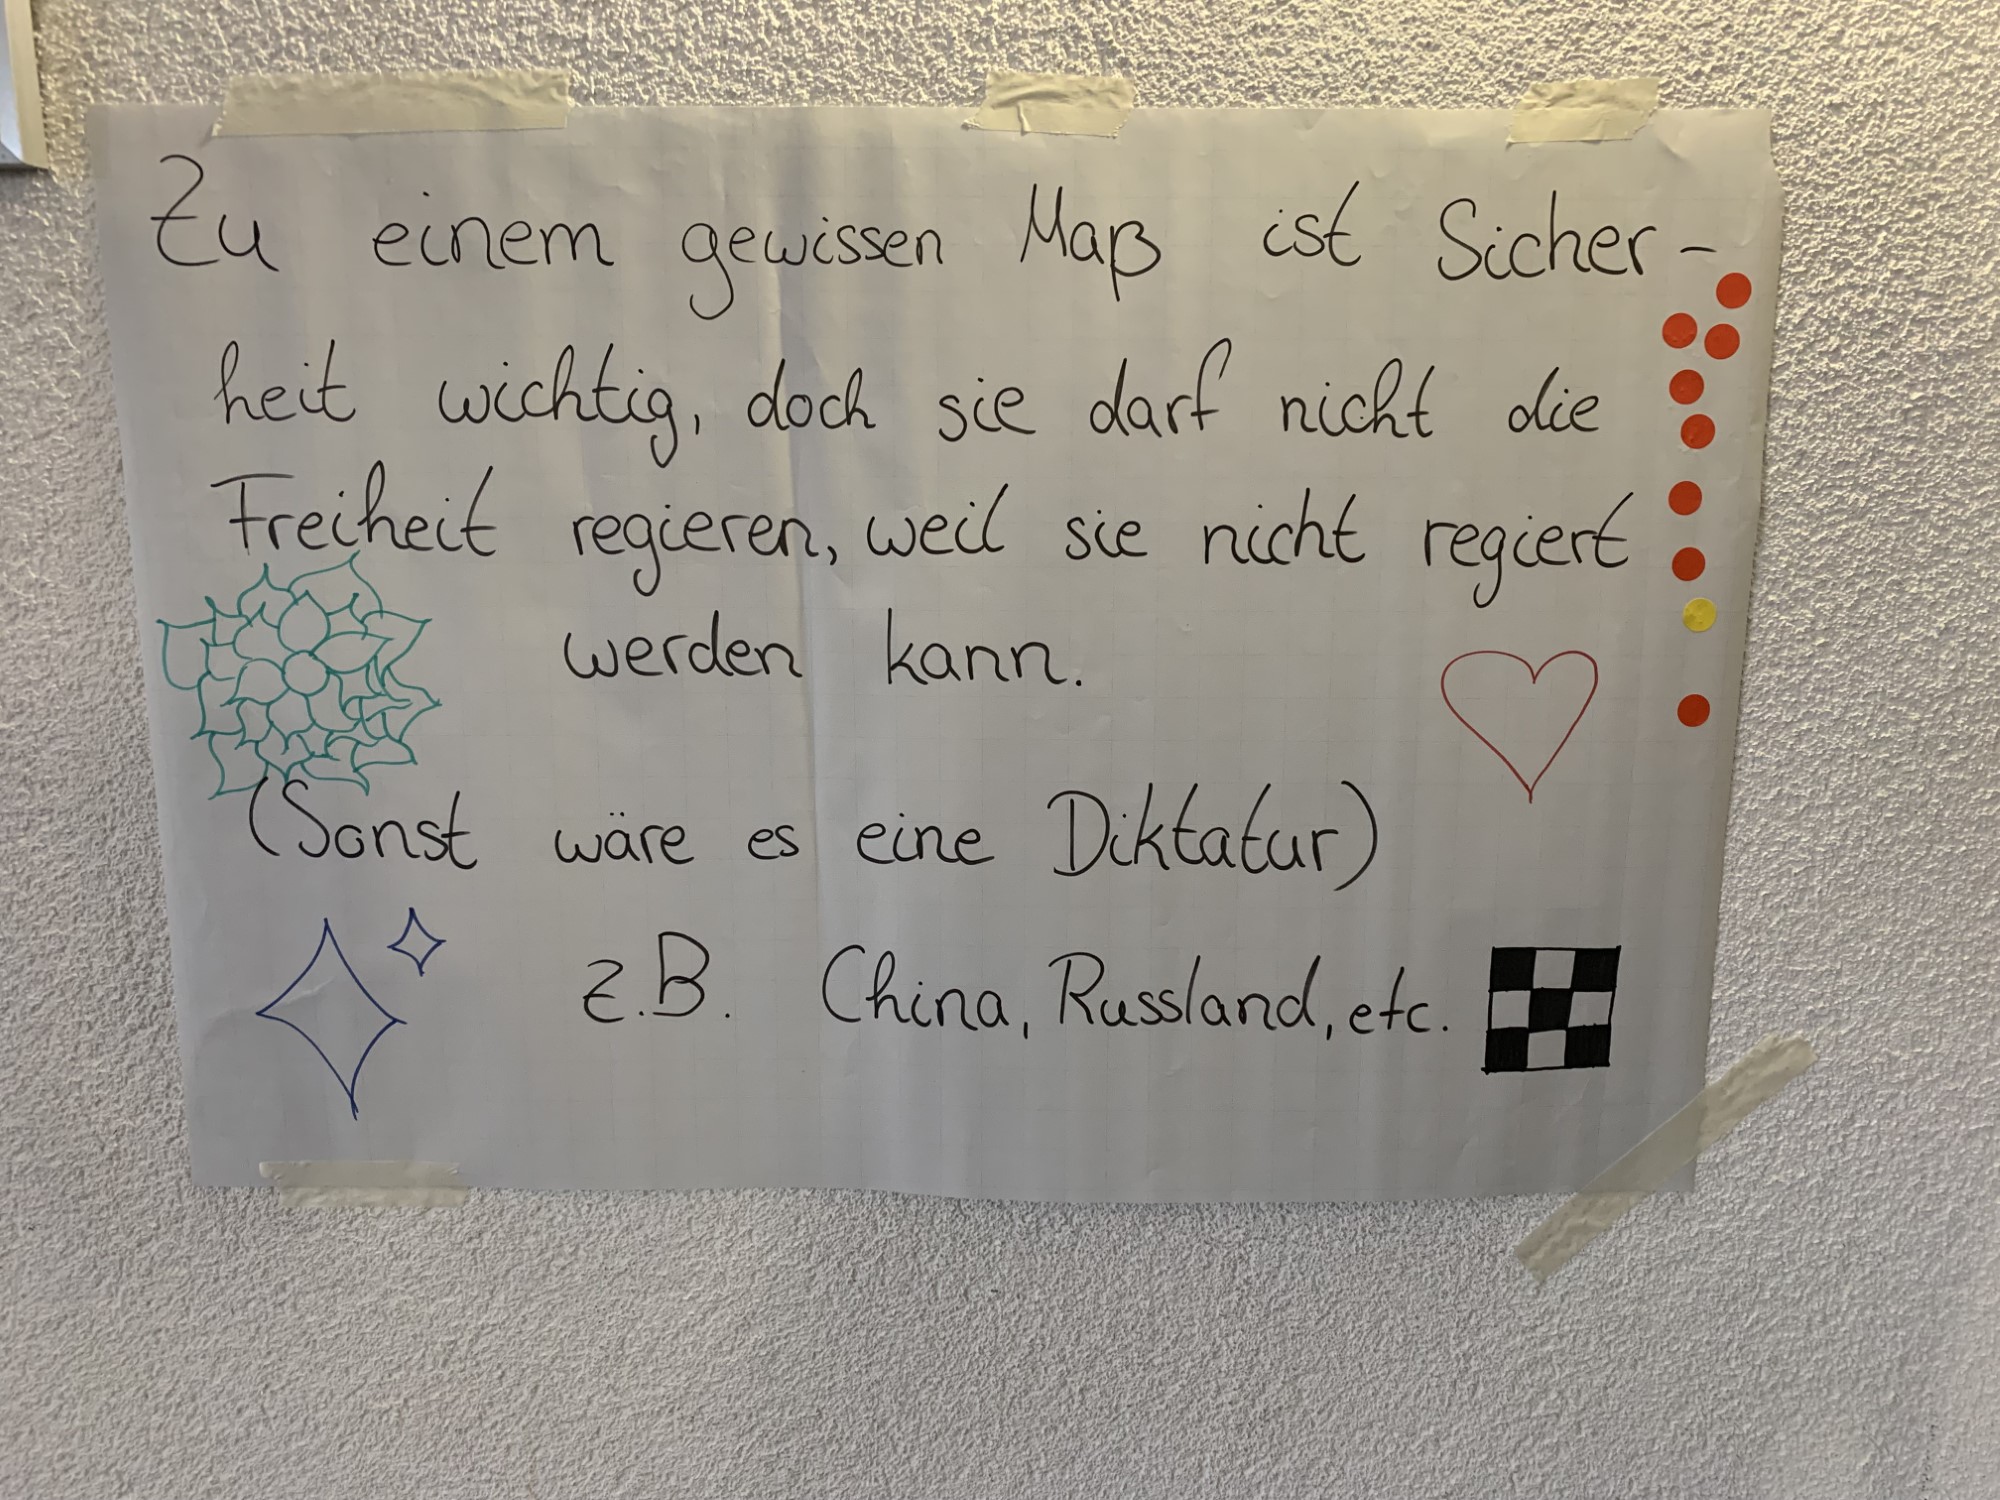 Zu einem gewissen Maß ist Sicher-
heit wichtig, doch sie darf nicht die
Freiheit regieren, weil sie nicht regiert
werden kann.
(Sonst wäre es eine Diktatur)
z.B. China, Russland, etc.